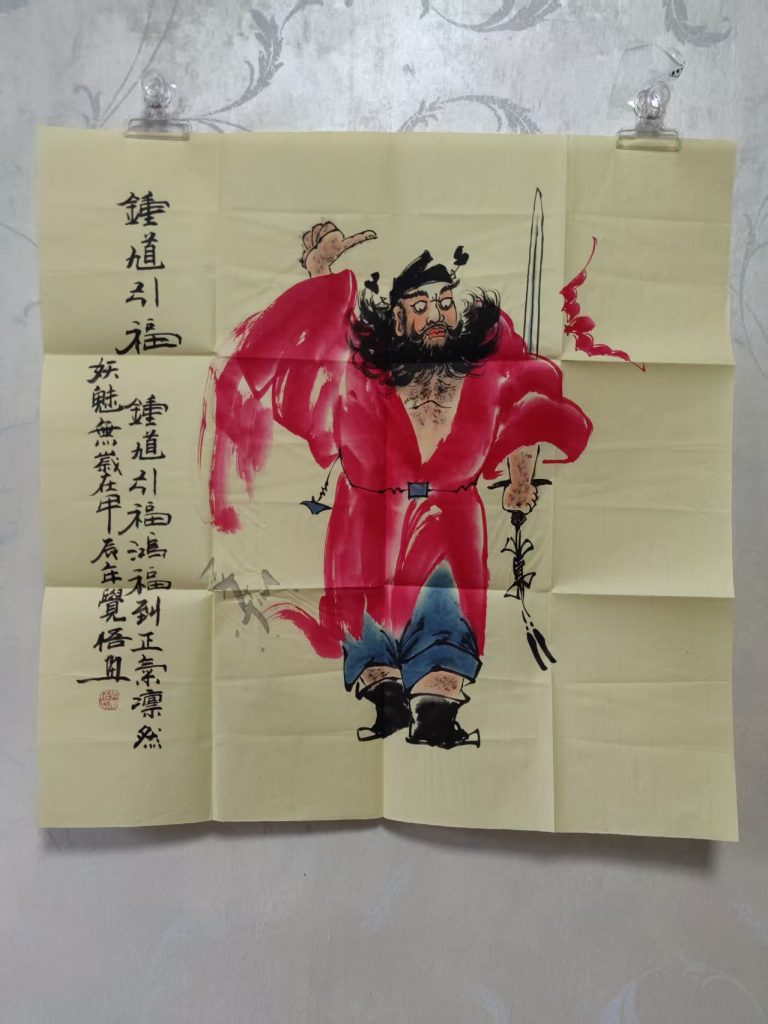 鍾馗引福
鍾馗引福鴻福到正氣凜然
妖魅無藏在甲辰年覺悟畫